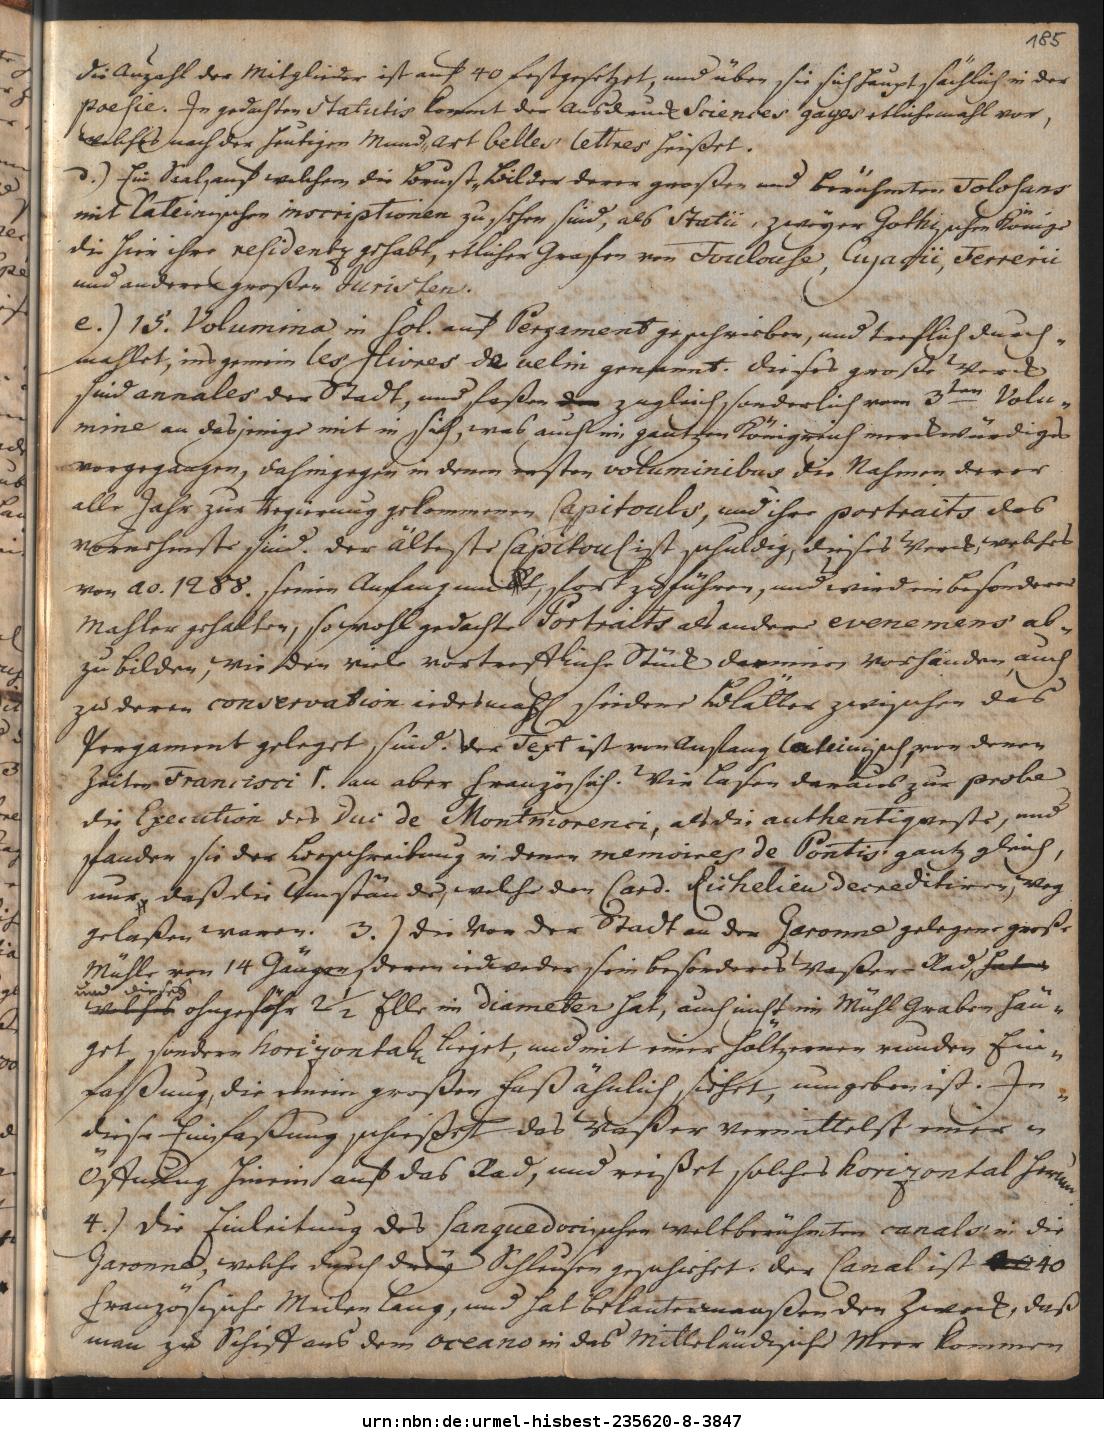 185
die Anzahl der Mitglieder ist auf 40 festgesetzet, und üben sie sich hauptsächlich in der
poesie. In gedachten Statutis kommt der Ausdruck Sciences gayes etlichemahl vor,
welches nach der heutigen Mund,art belles lettres heißet.
d.) Ein Saal, auf welchem die Brust-Bilder derer großen und berühmten Tolosans
mit Lateinischen inscriptionen zu sehen sind, als Statii, zweyer Gothischen Könige
die hier ihre residentz gehabt, etlicher Grafen von Toulouse, Cujacii, Ferrerii
und anderer großen Juristen.
e.) 15. Volumina in fol. auf Pergament geschrieben, und treflich durch-
mahlet, insgemein les livres de velin genannt. dieses große Werck
sind annales der Stadt, und faßen zugleich, sonderlich vom 3ten Volu-
mine an dasjenige mit in sich, was auch im gantzen Königreich merckwürdiges
vorgegangen, dahingegen in denen ersten voluminibus die Nahmen derer
alle Jahr zur Regierung gekommenen Capitouls, und ihre portraits das
vornehmste sind. der älteste Capitoul ist schuldig, dieses Werck, welches
von ao. 1288. seinen Anfang nimt, fort zu führen, und wird ein besonderer
Mahler gehalten, sowohl gedachte Portraits als andere evenemens ab-
zu bilden, wie den viele vortreffliche Stück darinnen vorhanden, auch
zu deren conservation iedesmahl seidene Blätter zwischen das
Pergament geleget sind. der Text ist von Anfang Lateinisch, von denen
Zeiten Francisci I. an aber Französisch. Wir lasen daraus zur probe
die Execution des Duc de Montmorenci, als die authentiqueste, und
fanden sie der Beschreibung in denen memoires de Pontis gantz gleich,
nur, daß die Umstände, welche den Card. Richelieu decreditiren, weg
gelaßen waren. 3.) die vor der Stadt an der Garonne gelegene große
Mühle von 14 Gängen, deren iedweder sein besonderes Waßer-Rad, hat
und dieses
welches ohngefähr 2 1/2 Elle im diameter hat, auch nicht im Mühl Graben hän-
get, sondern horizontal lieget, und mit einer höltzernen runden Ein-
faßung, die einem großen Faß ähnlich siehet, umgeben ist. In
diese Einfaßung schießet das Waßer vermittelst einer
Öffnung hinein auf das Rad, und reißet solches horizontal herum.
4.) Die Einleitung des Languedocischen weltberühmten canals in die
Garonne, welche durch drey Schleusen geschiehet. der Canal ist 40
Französische Meilen lang, und hat bekantermaaßen den Zweck, daß
man zu Schiff aus dem oceano in das Mittelländische Meer kommen
urn:nbn:de:urmel-hisbest-235620-8-3847